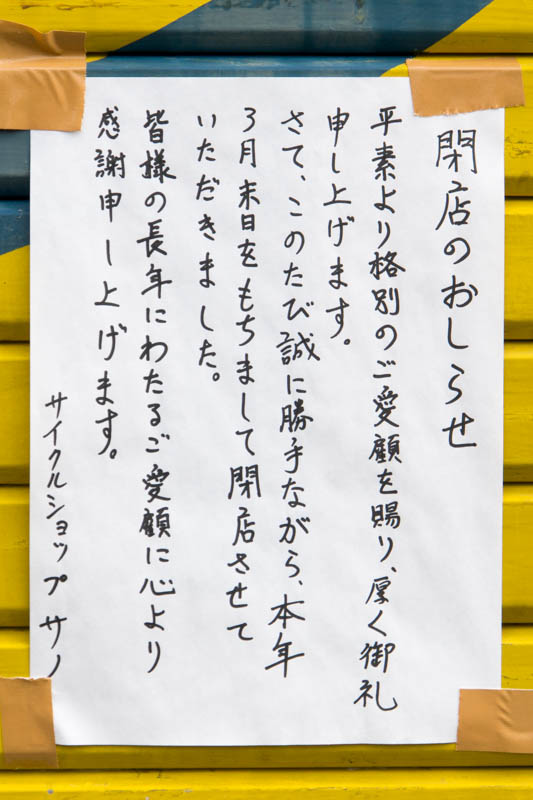 閉店のおしらせ
平素より格別のご愛顧を賜り、厚く御礼
申し上げます。
さて、このたび誠に勝手ながら、本年
3月末日をもちまして閉店させて
いただきました。
皆様の長年にわたるご愛顧に心より
感謝申し上げます。
サイクルショップ サノ